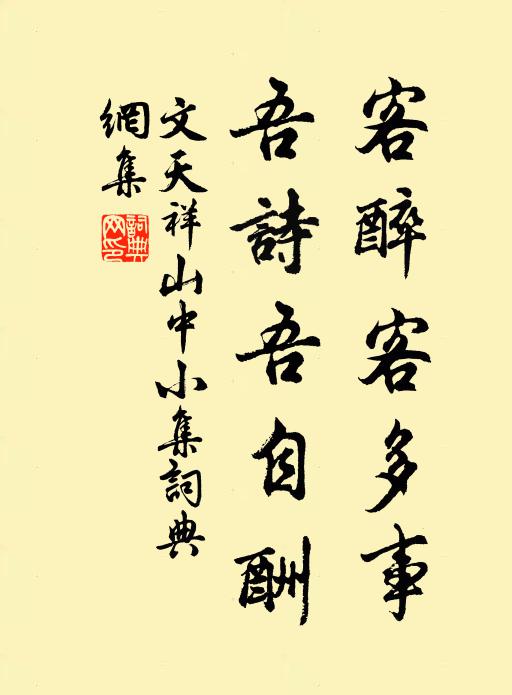 客醉客多事
吾詩吾自酬
文天祥山中小集詞典
網集
詞典網印